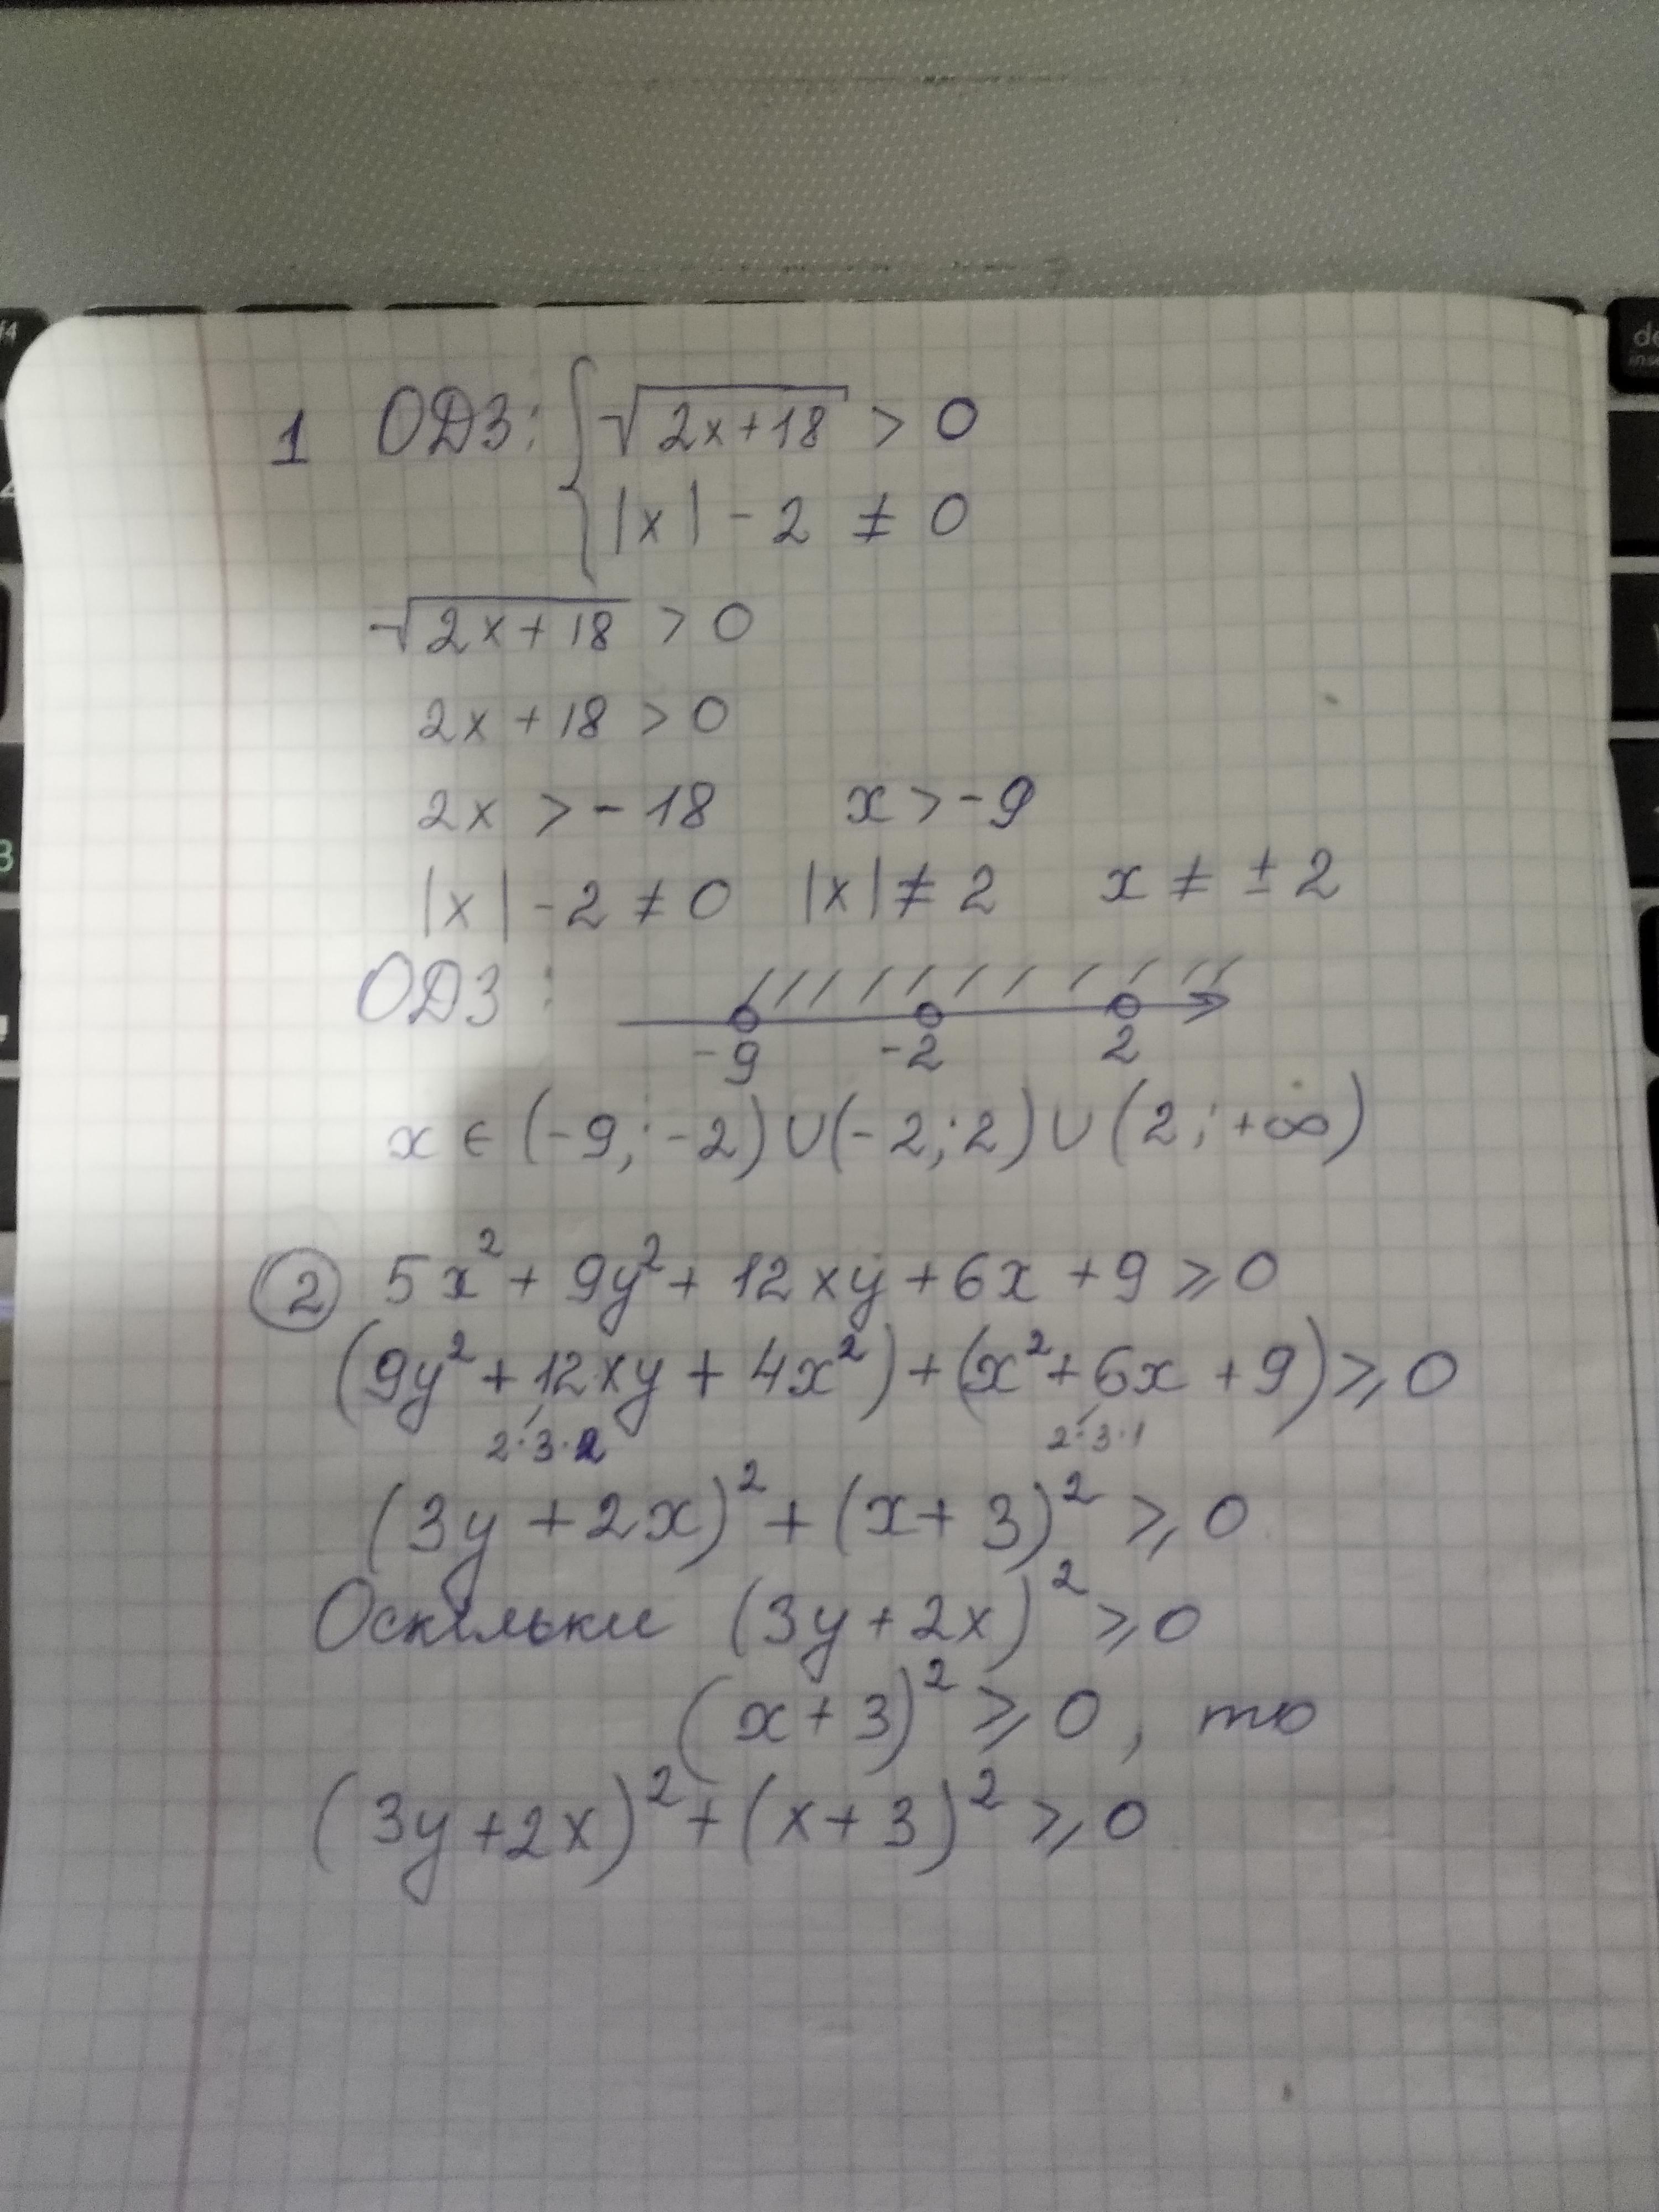 1 ОДЗ: { √(2x+18) > 0
|x| - 2 ≠ 0
√(2x+18) > 0
2x + 18 > 0
2x > - 18 x > - 9
|x| - 2 ≠ 0 |x| ≠ 2 x ≠ ± 2
ОДЗ :
-9 -2 2
x ∈ (-9; -2) ∪ (-2; 2) ∪ (2; +∞)
② 5x² + 9y² + 12xy + 6x + 9 ⩾ 0
(9y² + 12xy + 4x²) + (x² + 6x + 9) ⩾ 0
2·3·2 2·3·1
(3y + 2x)² + (x + 3)² ⩾ 0
Оскільки (3y + 2x)² ⩾ 0
(x + 3)² ⩾ 0, то
(3y + 2x)² + (x + 3)² ⩾ 0